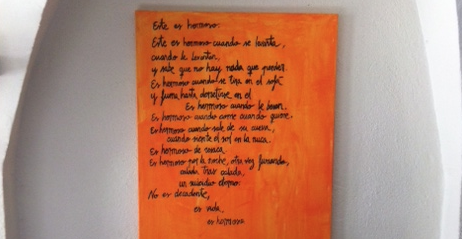 Este es hermoso.
Este es hermoso cuando se levanta,
cuando le levantan,
y sabe que no hay nada que perder.
Es hermoso cuando se tira en el sofá
y fuma hasta derretirse en el
Es hermoso cuando le besan.
Es hermoso cuando corre cuando quiere.
Es hermoso cuando sale de su cueva,
cuando siente el sol en la nuca.
Es hermoso de resaca.
Es hermoso por la noche, otra vez fumando,
calada tras calada,
un suicidio eterno.
No es decadente,
es vida,
es hermoso